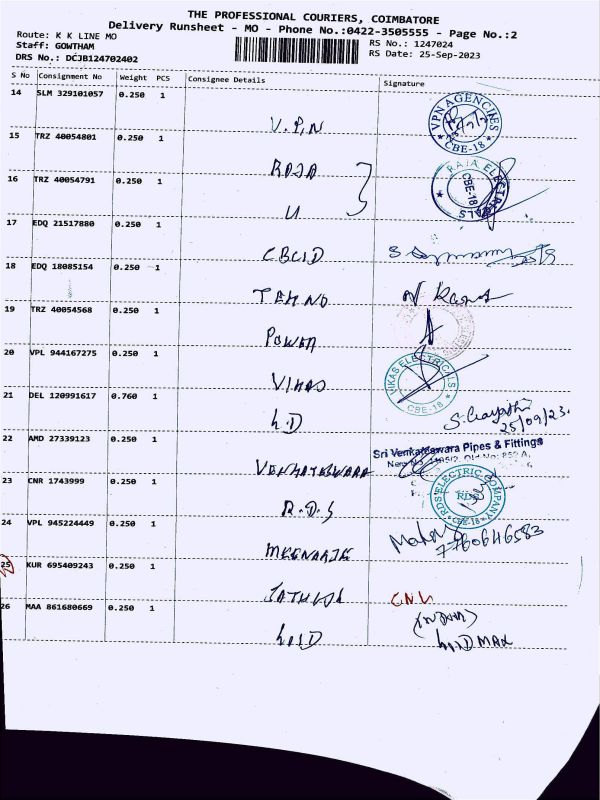 THE PROFESSIONAL COURIERS, COIMBATORE
Delivery Runsheet - MO - Phone No.:0422-3505555 - Page No.:2
Route: K K LINE MO
RS No.: 1247024
Staff: GOWTHAM
RS Date: 25-Sep-2023
DRS No.: DCJB124702402
S No Consignment No Weight PCS Consignee Details Signature
14 SLM 329101057 0.250 1
V.P.N
VPN AGENCIES
CBE-18
15 TRZ 40054801 0.250 1
RAJA
RAJA ELECTRICALS
CBE-18
16 TRZ 40054791 0.250 1
17 EDQ 21517880 0.250 1
CBCID
18 EDQ 18085154 0.250 1
19 TRZ 40054568 0.250 1
POWER
20 VPL 944167275 0.250 1
VIKAS
VIKAS ELECTRICALS
CBE-18
21 DEL 120991617 0.760 1
25/09/23.
22 AMD 27339123 0.250 1
VENKATESWARA
Sri Venkateswara Pipes & Fittings
23 CNR 1743999 0.250 1
R.D.S
RDS ELECTRIC COMPANY
RDS
CBE-18
24 VPL 945224449 0.250 1
7760646583
25 KUR 695409243 0.250 1
26 MAA 861680669 0.250 1